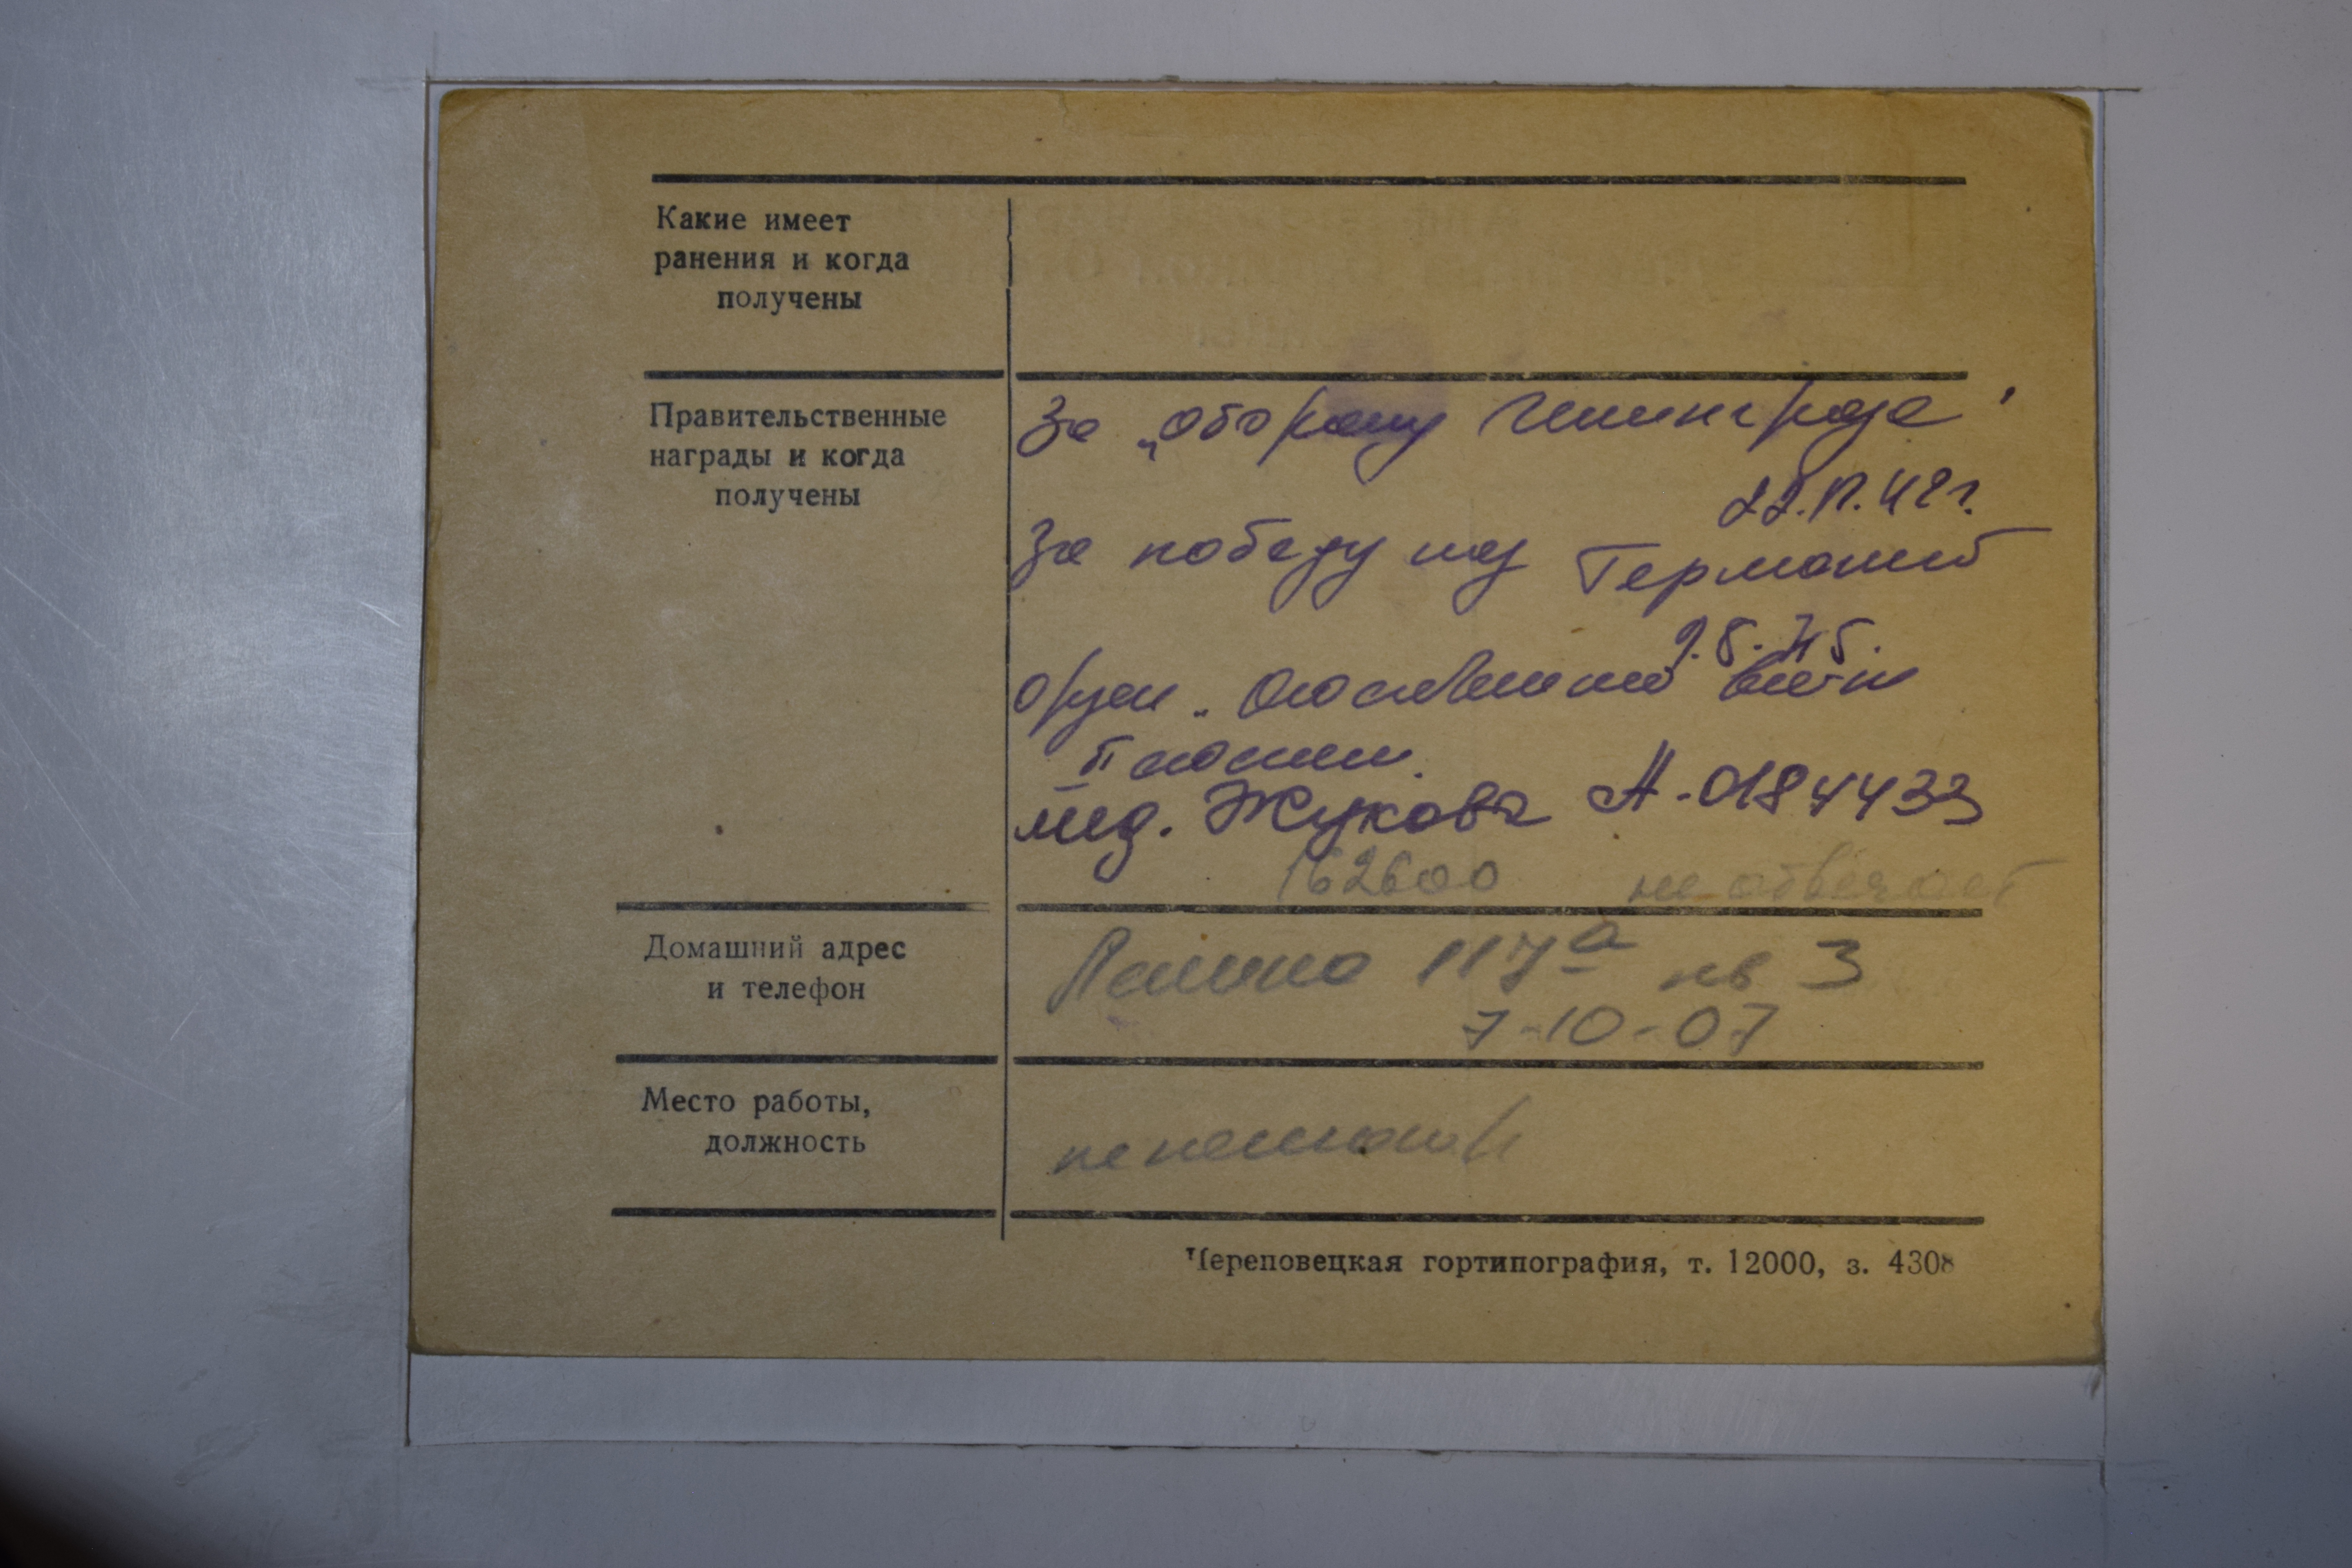 Какие имеет
ранения и когда
получены
Правительственные
награды и когда
получены
За „оборону Ленинграда"
22.12.42г.
За победу над Германией
9.5.45.
Орден. Отечественной войны
II степени.
мед. Жукова А-0184433
162600 не отвечает
Домашний адрес
и телефон
Ленина 117а кв 3
7-10-07
Место работы,
должность
пенсионер
Череповецкая гортипография, т. 12000, з. 4308